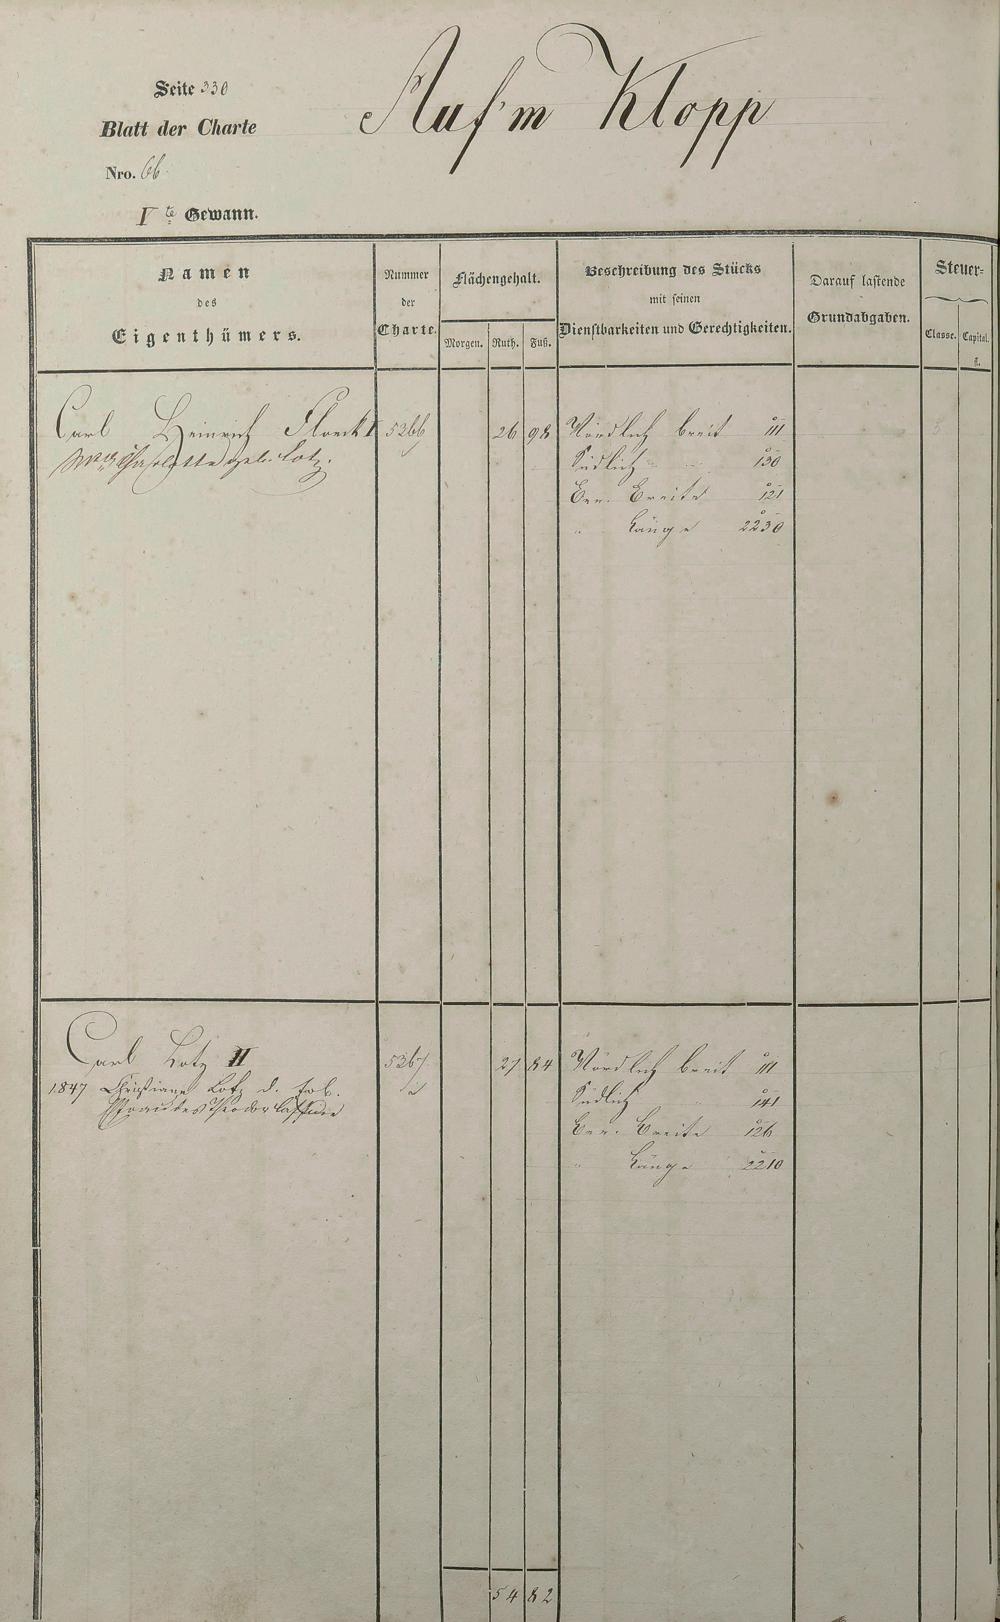 Seite 330
Auf'm Klopp
Blatt der Charte
Nro. 66.
I te Gewann.
Namen des Eigenthümers.
Nummer der Charte.
Flächengehalt.
Morgen. Ruth. Fuß.
Beschreibung des Stücks
mit seinen
Dienstbarkeiten und Gerechtigkeiten.
Darauf lastende
Grundabgaben.
Steuer-
Classe. Capital.
fl.
Carl Heinrich Floeck I 5366 26 98 Nördlich breit 111
Charlotte geb. Lotz. Südlich 130
Breite 121
" Länge 2230
Carl Lotz II 5367 27 84 Nördlich breit 111
1847 Christiane Lotz d. Südlich 141
Theodor Breite 126
" Länge 2210
54 82